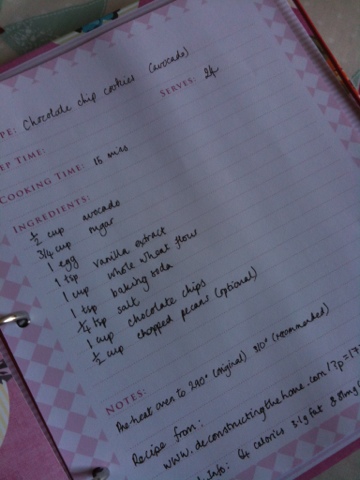 PE: Chocolate chip cookies (avocado)
SERVES: 24
EP TIME:
COOKING TIME: 15 mins
INGREDIENTS:
1/2 cup avocado
3/4 cup sugar
1 egg
1 tsp vanilla extract
1 cup whole wheat flour
1 tsp baking soda
1/4 tsp salt
1 cup chocolate chips
1/2 cup chopped pecans (optional)
NOTES:
Pre-heat oven to 240° (original) 210° (recommended)
Recipe from:
www.deconstructingthehome.com/?p=19
Info: calories 3.1g fat